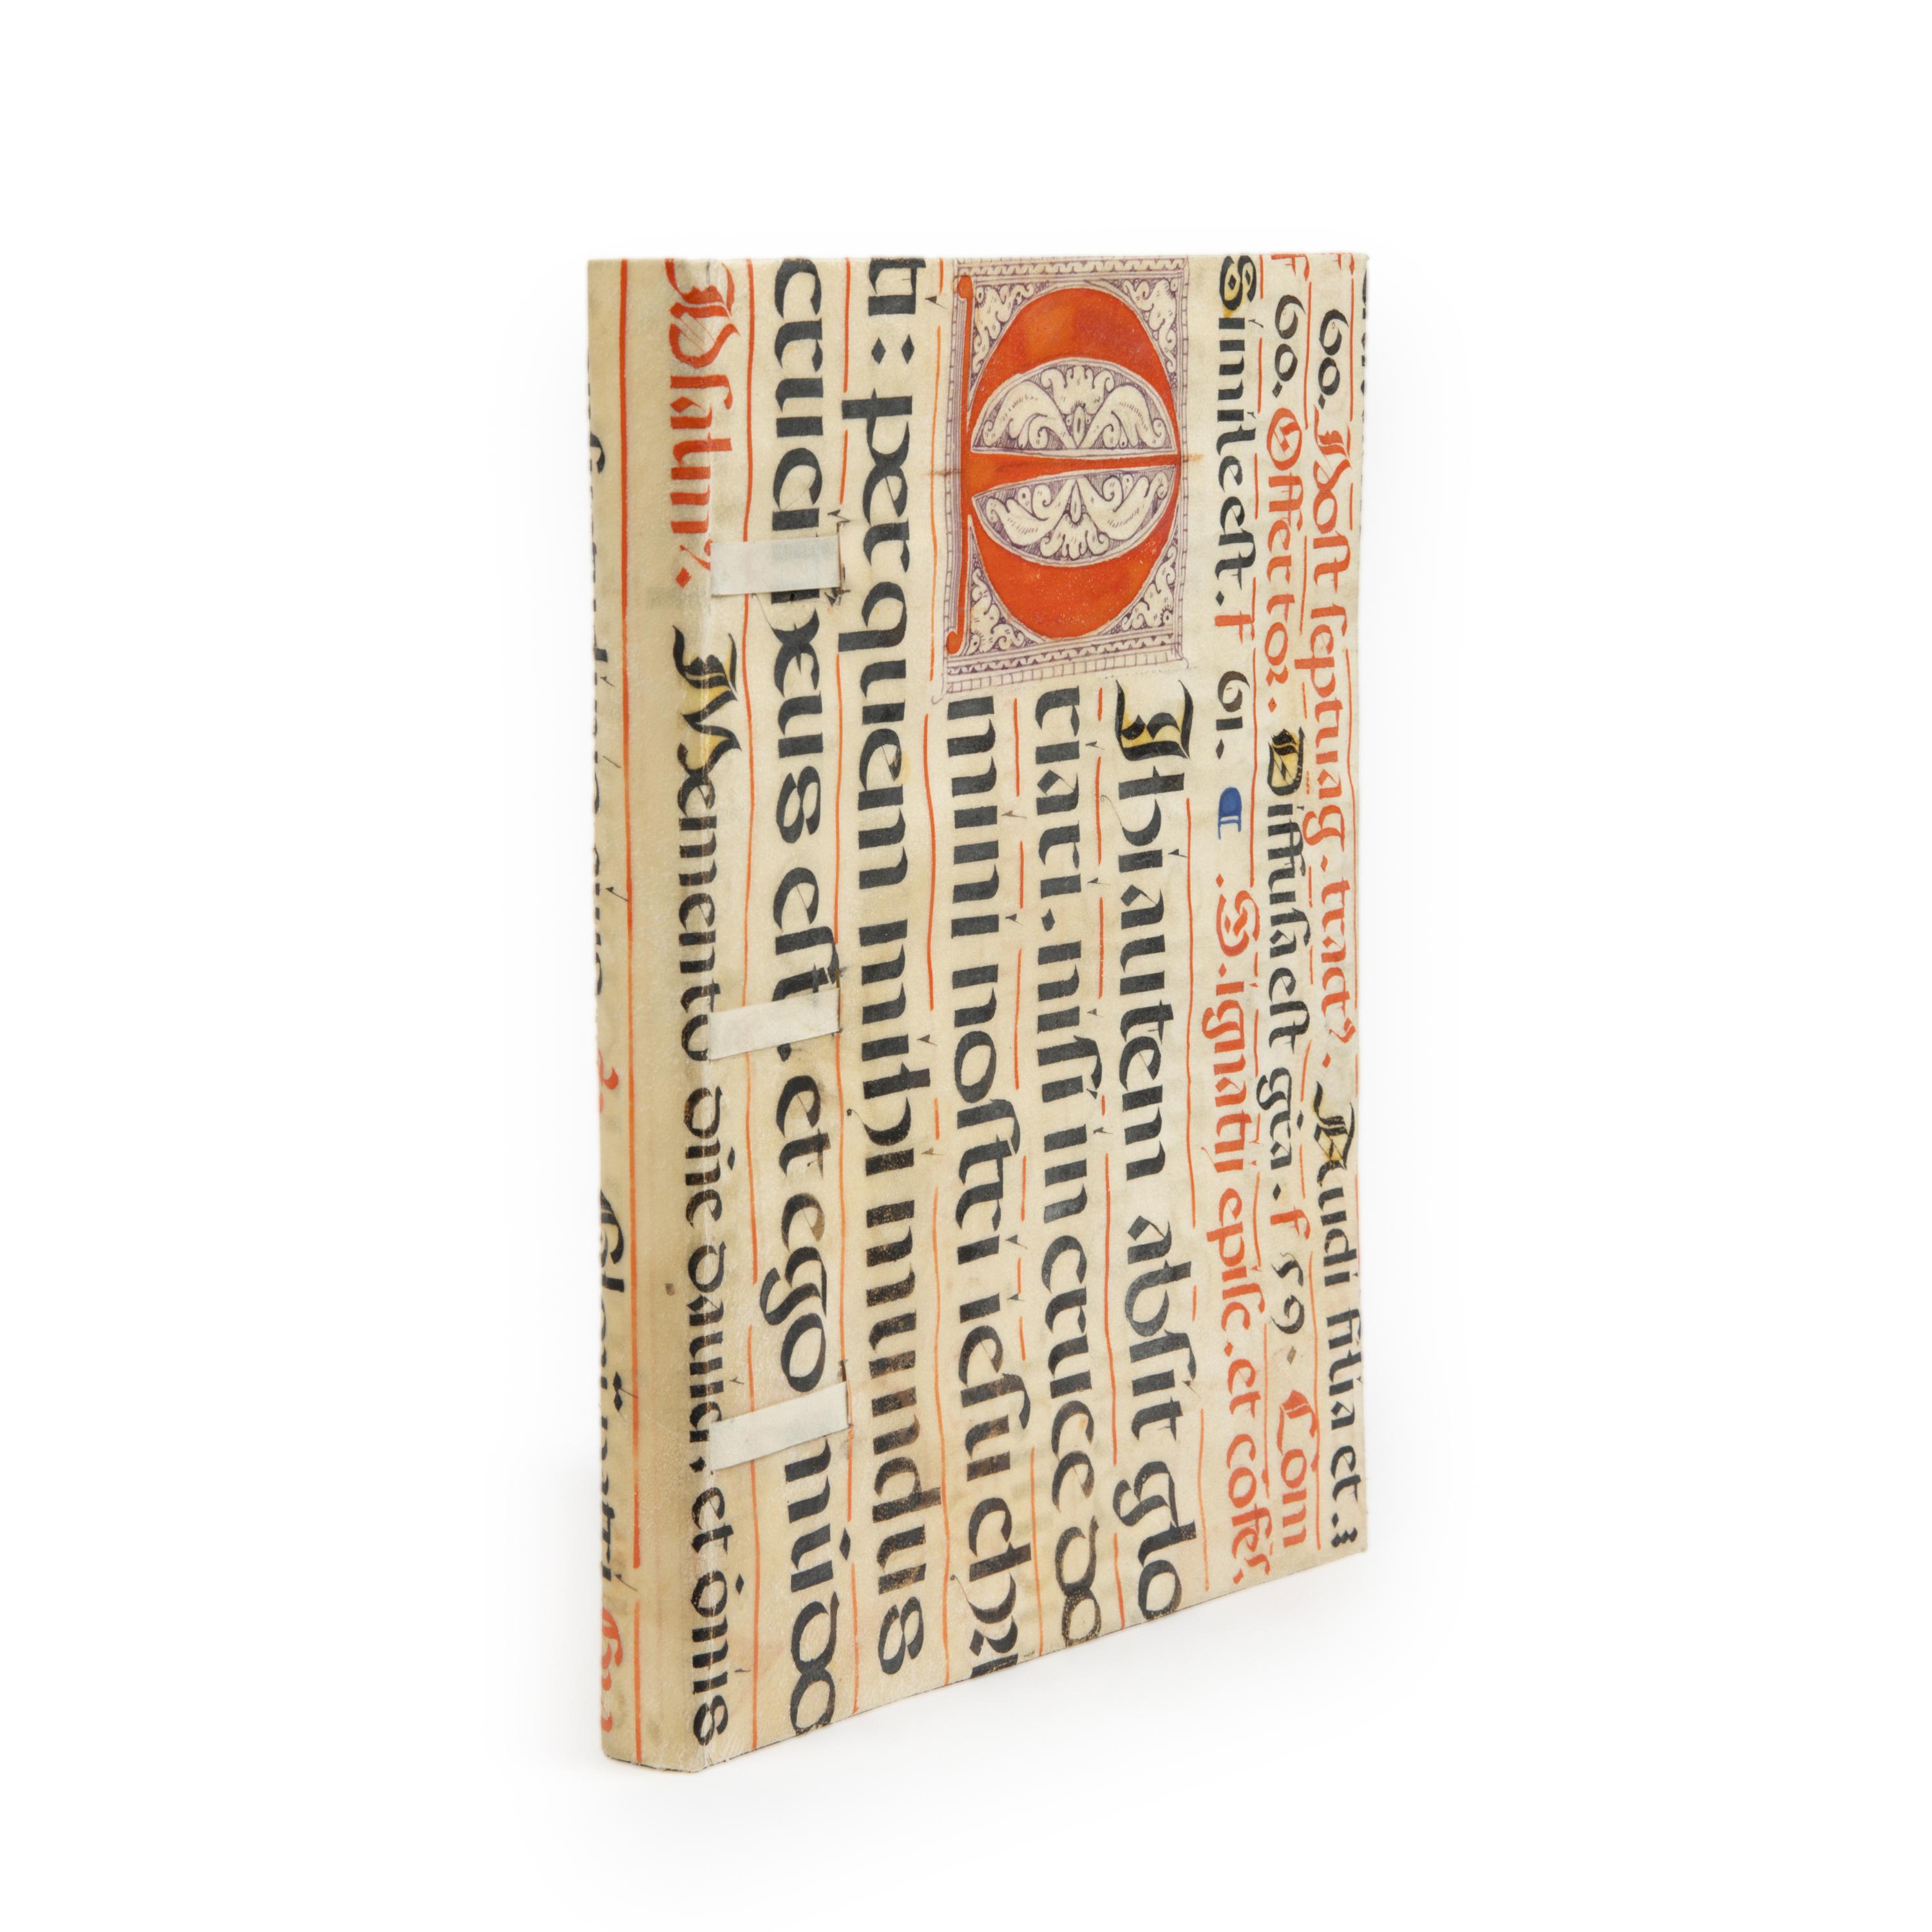 60. Post septuag. tract9. Audi filia et. 3
f 60. Offertor. Diffusa est gr̄a. f 59. Com̄
Simile est. f 61. ¶ .S. ignatii episc. et cōfes.
Ihi autem absit glo
riari. nisi in cruce do
mini nostri iesu chri
ti: per quem mihi mundus
cruci ixus est. et ego mūdo
Psalm9. Memento dn̄e dauid. et om̄is